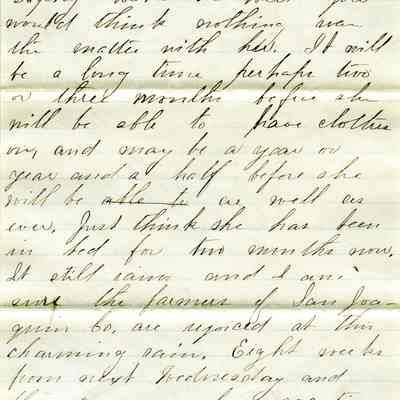 would think nothing was
the matter with her. It will
be a long time perhaps two
or three months before she
will be able to have clothes
on, and may be a year or
year and a half before she
will be able to as well as
ever. Just think she has been
in bed for two months now.
It still rains and I am
sure the farmers of San Joa-
quin Co. are rejoiced at this
charming rain. Eight weeks
from next Wednesday and